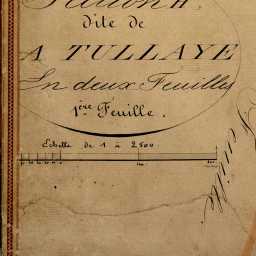 Section H,
dite de
A TULLAYE
En deux Feuilles
1ère Feuille.
Echelle de 1 à 2500
Feuille